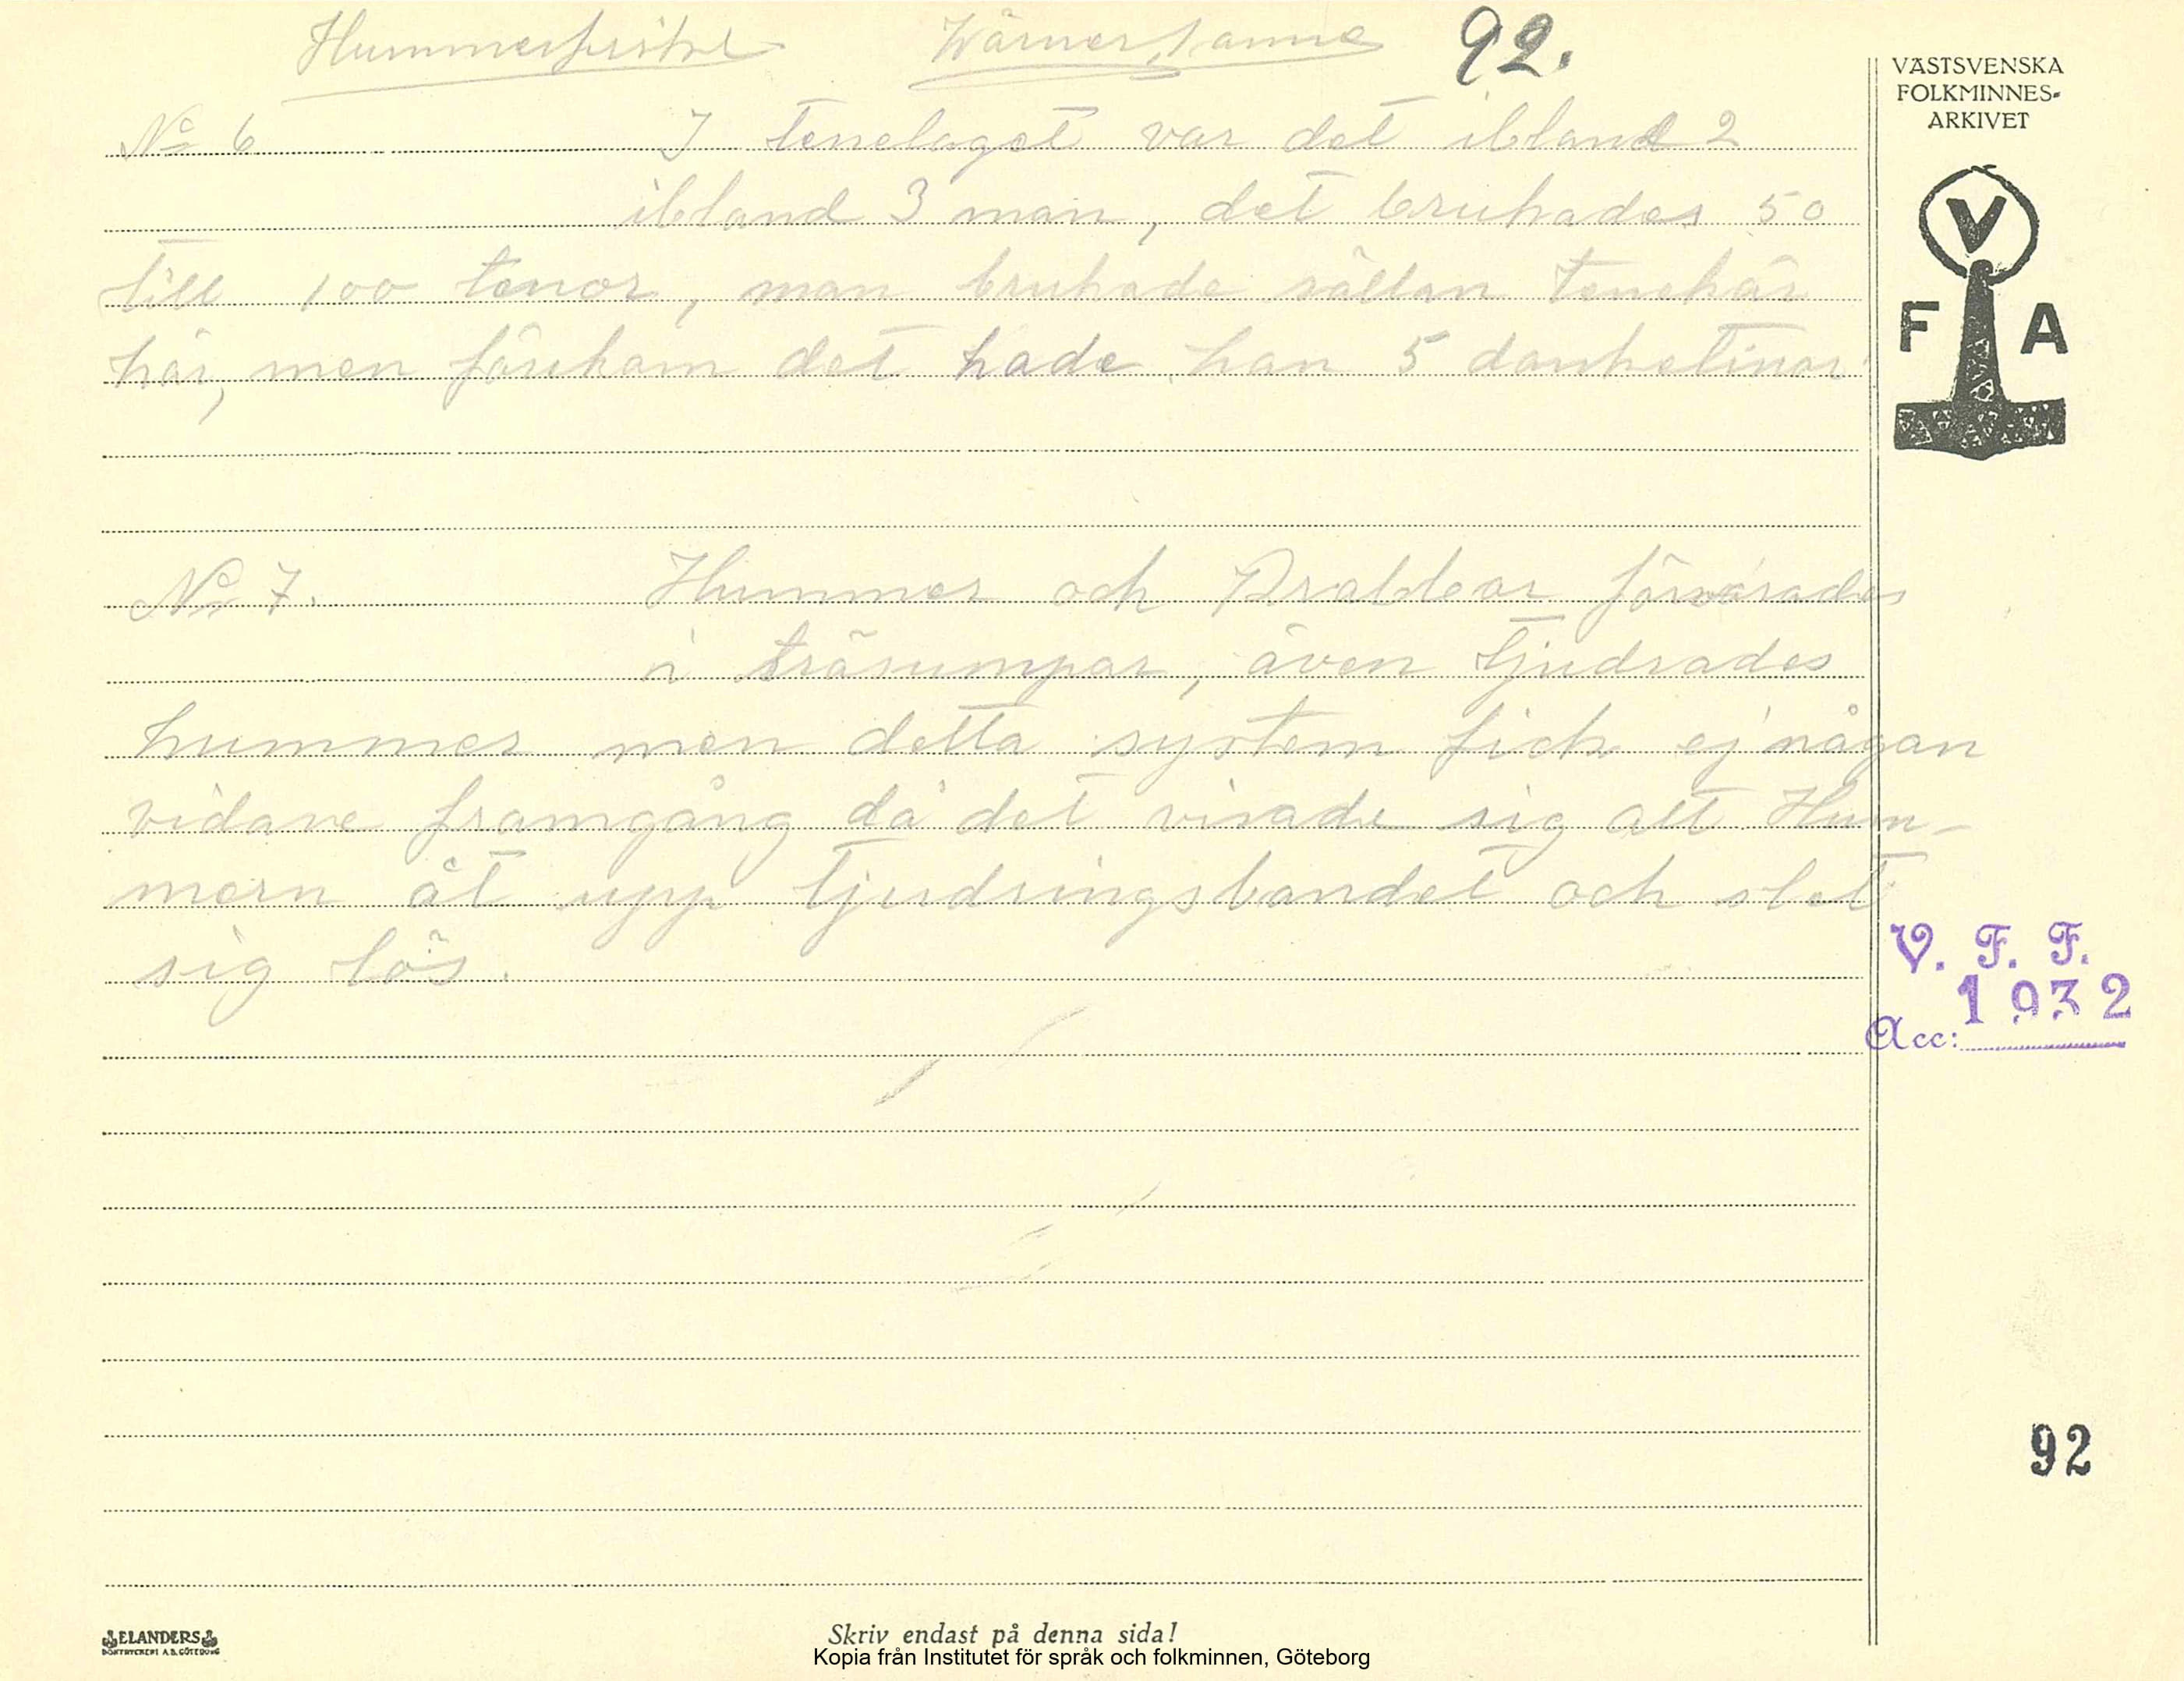 Hummerfiske Wärnersanna 92.
VÄSTSVENSKA
FOLKMINNES-
ARKIVET
V
F A
No 6 I tenelaget var det ibland 2
ibland 3 man, det brukades 50
till 100 tenor, man brukade sällan tenekar
här, men förekom det hade han 5 danketinor
No 7. Hummer och Krabbor förvarades
i träsumpar, även tjudrades
hummer men detta system fick ej någan
vidare framgång då det visade sig att Hum-
mern åt upp tjudringsbandet och slet
sig lös.
V. F. F.
1932
Acc:
92
ELANDERS
BOKTRYCKERI A.B. GÖTEBORG
Skriv endast på denna sida!
Kopia från Institutet för språk och folkminnen, Göteborg